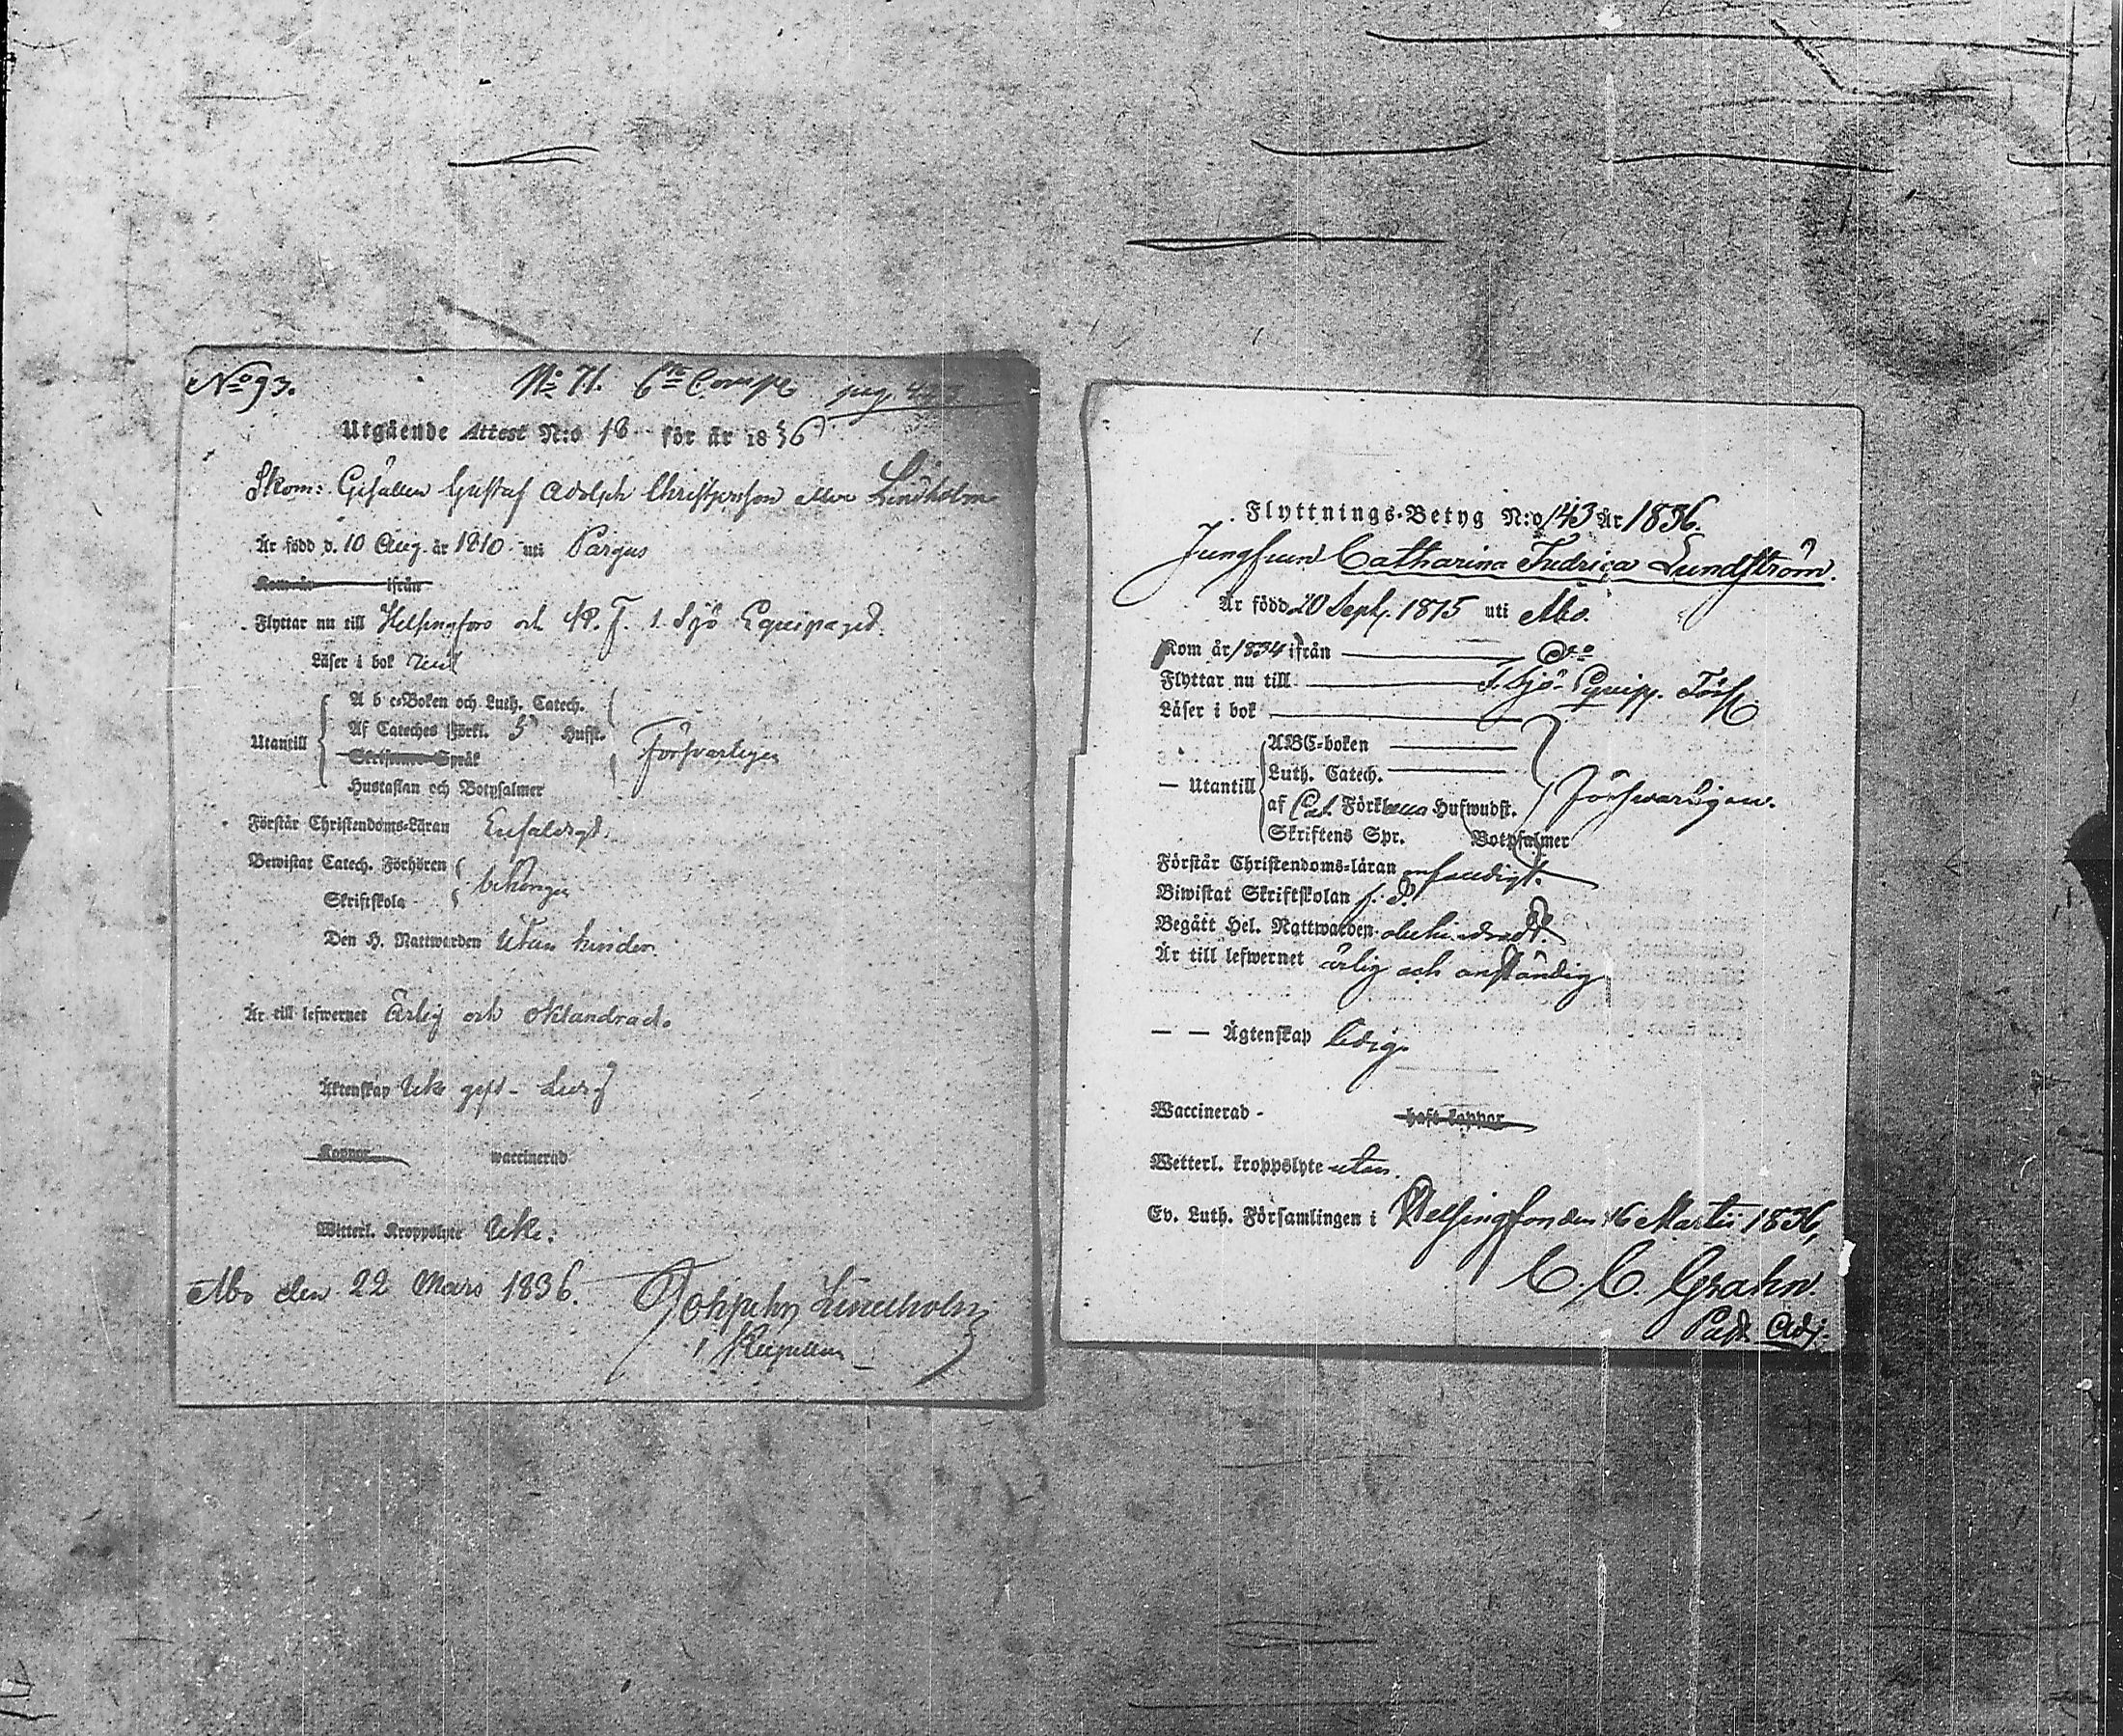 No 93. No 71. 6te Comp pag.
Utgående Attest N:o 18 för år 1836
Skom: Gesällen Gustaf Adolph Christersson eller Lindholm
Är född d. 10 Aug. år 1810 uti Pargas
Kom år ifrån
Flyttar nu till Helsingfors och K. F. 1. Sjö Equipaget.
Läser i bok
Utantill
A b c-Boken och Luth. Catech.
Af Cateches Förkl. 5 Hufst.
Skriftenes Språk
Hustaflan och Botpsalmer
Försvarligen
Förstår Christendoms-Läran Enfaldigt.
Bewistat Catech. Förhören
Skriftskola
behörigen
Den H. Nattwarden Utan hinder.
Är till lefwernet Ärlig och oklandrad.
Äktenskap Icke gift - Ledig
Koppor waccinerad
Witterl. Kroppslyte Icke.
Åbo den 22 Mars 1836.
Lindholm
Flyttnings-Betyg N:o 143 År 1836.
Jungfrun Catharina Fredrica Lundström.
Är född 20 Sept. 1815 uti Åbo.
Kom år 1834 ifrån do
Flyttar nu till 1. Sjö-Equip. Förs.
Läser i bok
Utantill
ABC-boken
Luth. Catech.
af Cat. Förkl. Hufwudst.
Skriftens Spr. Botpsalmer
försvarligen.
Förstår Christendoms-läran enfaldigt.
Biwistat Skriftskolan f. d.
Begått Hel. Nattwarden obehindradt.
Är till lefwernet ärlig och anständig
— — Ägtenskap ledig.
Waccinerad - haft koppor
Wetterl. kroppslyte utan.
Ev. Luth. Församlingen i Helsingfors den 16 Martii 1836,
C. C. Grahn.
Past. Adj.